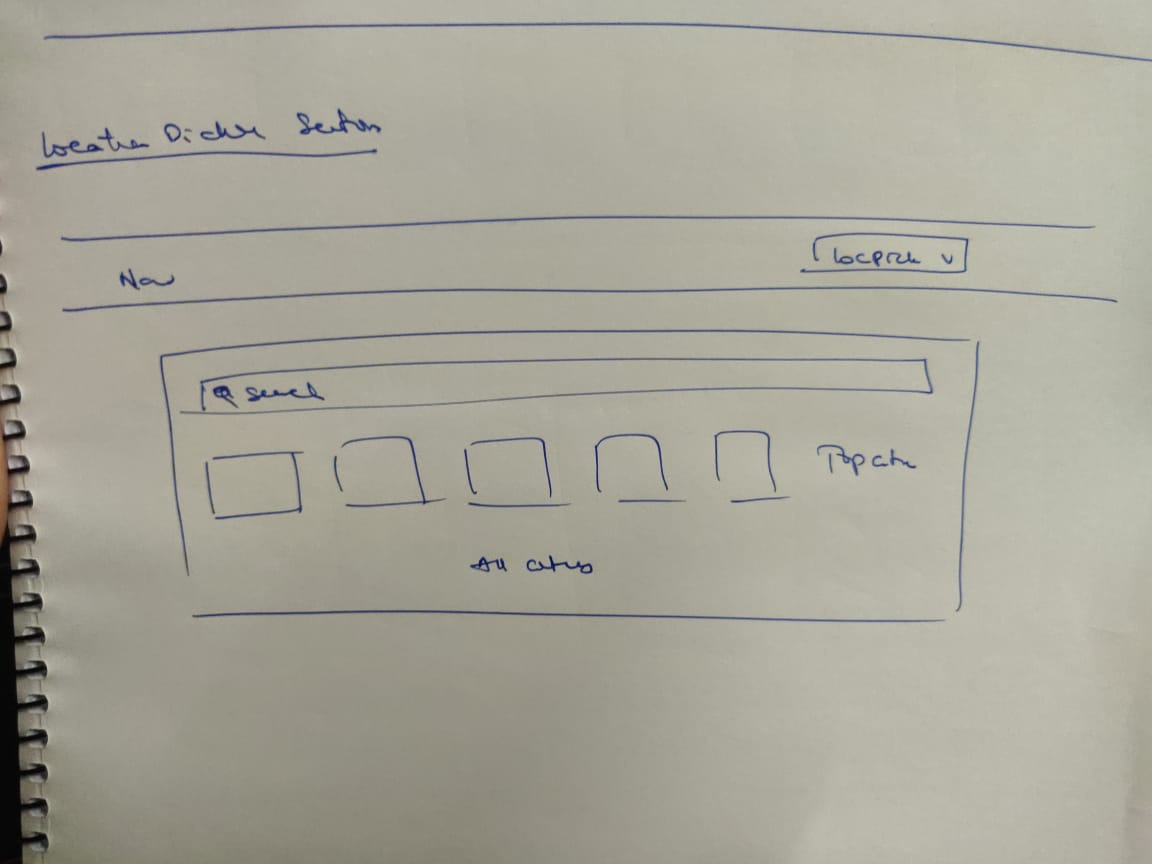 Location Picker Section
Nav
loc pick v
Search
Pop cities
All cities